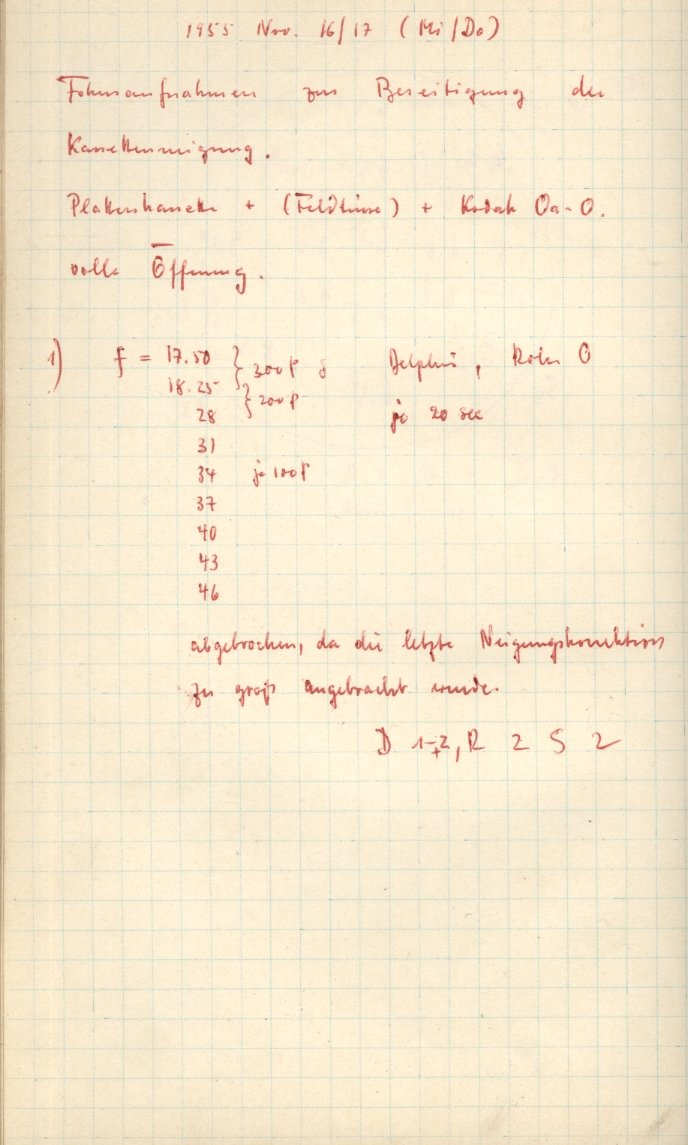 1955 Nov. 16/17 (Mi/Do)
Fokusaufnahmen zur Beseitigung der
Kassettenneigung.
Plattenkassette + (Feldlinse) + Kodak Oa-O.
volle Öffnung.
1) f = 17.50 } 300 δ Delphini, Rohr O
18.25 } 200
28 je 20 sec
31
34 je 100
37
40
43
46
abgebrochen, da die letzte Neigungskorrektion
zu groß angebracht wurde.
D 1-2, R 2 S 2